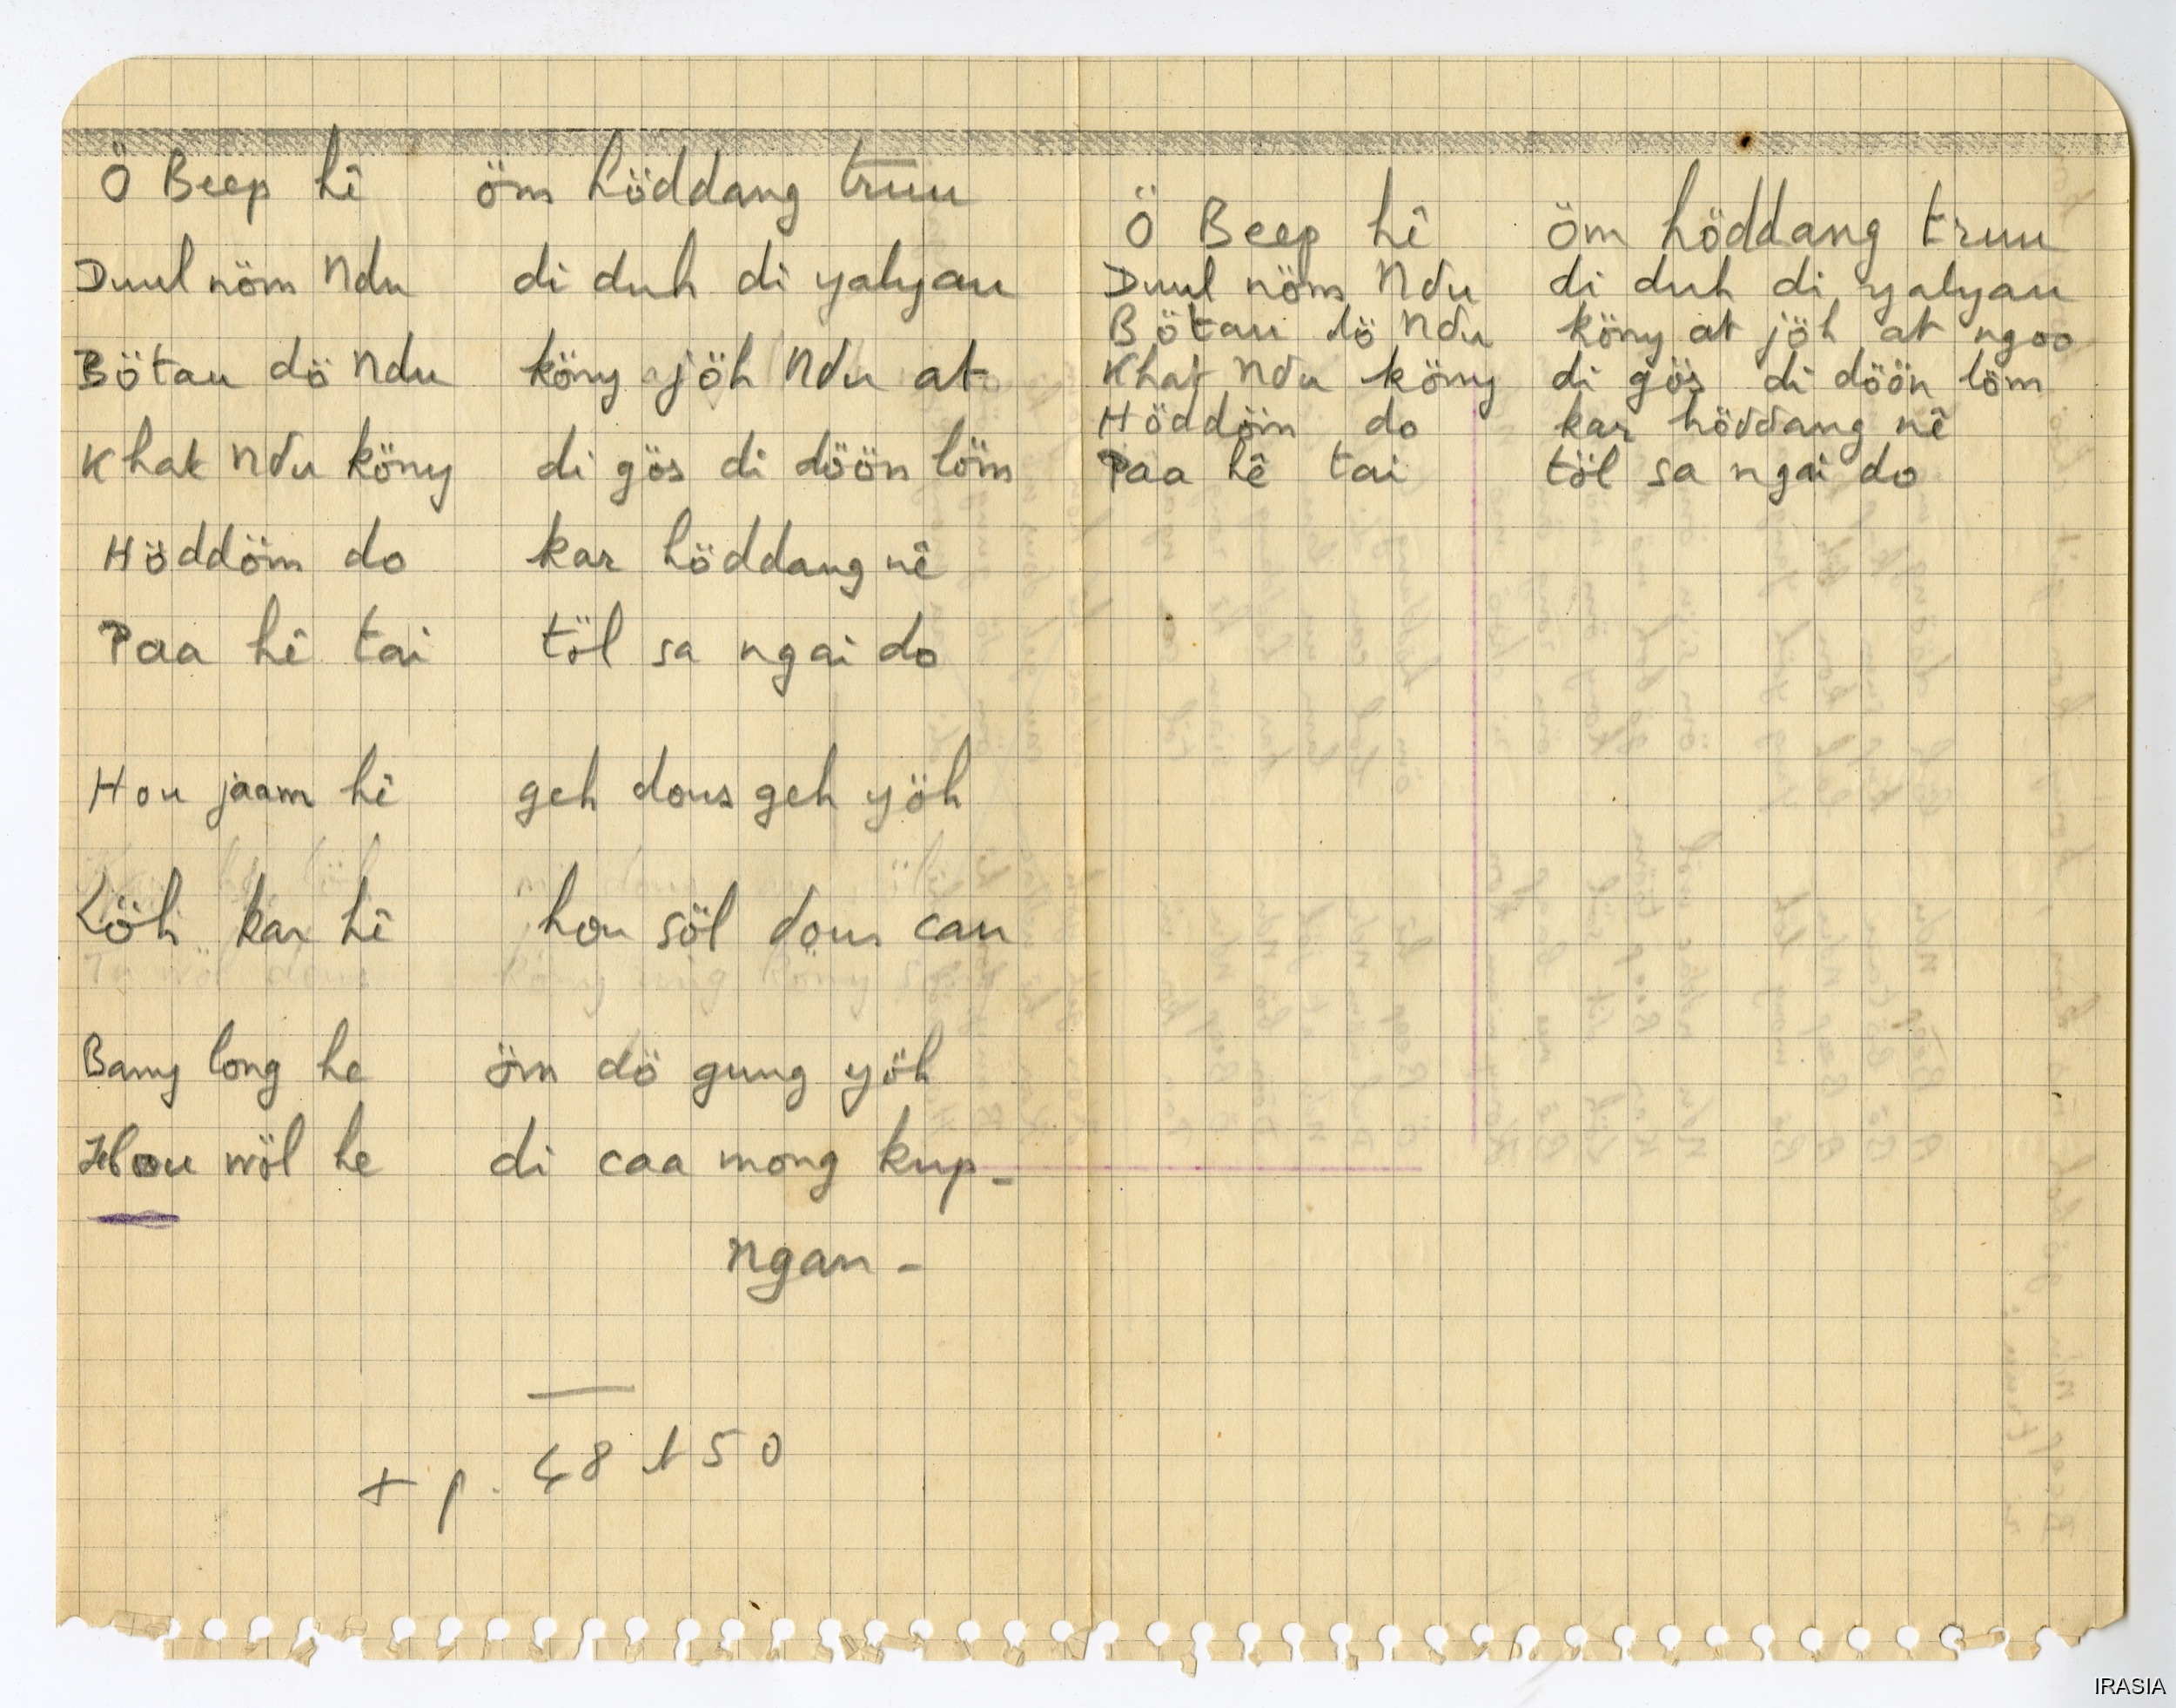 Ö Beep hê öm höddang truu
Duul nöm Ndu di duh di yalyau
Bötau dö Ndu köny jöh Ndu at
Khat Ndu köny di gös di döön löm
Höddöm do kar höddang nê
Paa hê tai töl sa ngai do
Hou jaam hê geh dous geh yöh
Löh kar hê hou söl dous cau
Bany long he öm dö gung yöh
Hou wöl he di caa mong kup-
ngan-
+ p. 48 + 50
Ö Beep hê öm höddang truu
Duul nöm Ndu di duh di yalyau
Bötau dö Ndu köny at jöh at ngoo
Khat Ndu köny di gös di döön löm
Höddöm do kar höddang nê
Paa hê tai töl sa ngai do
IRASIA